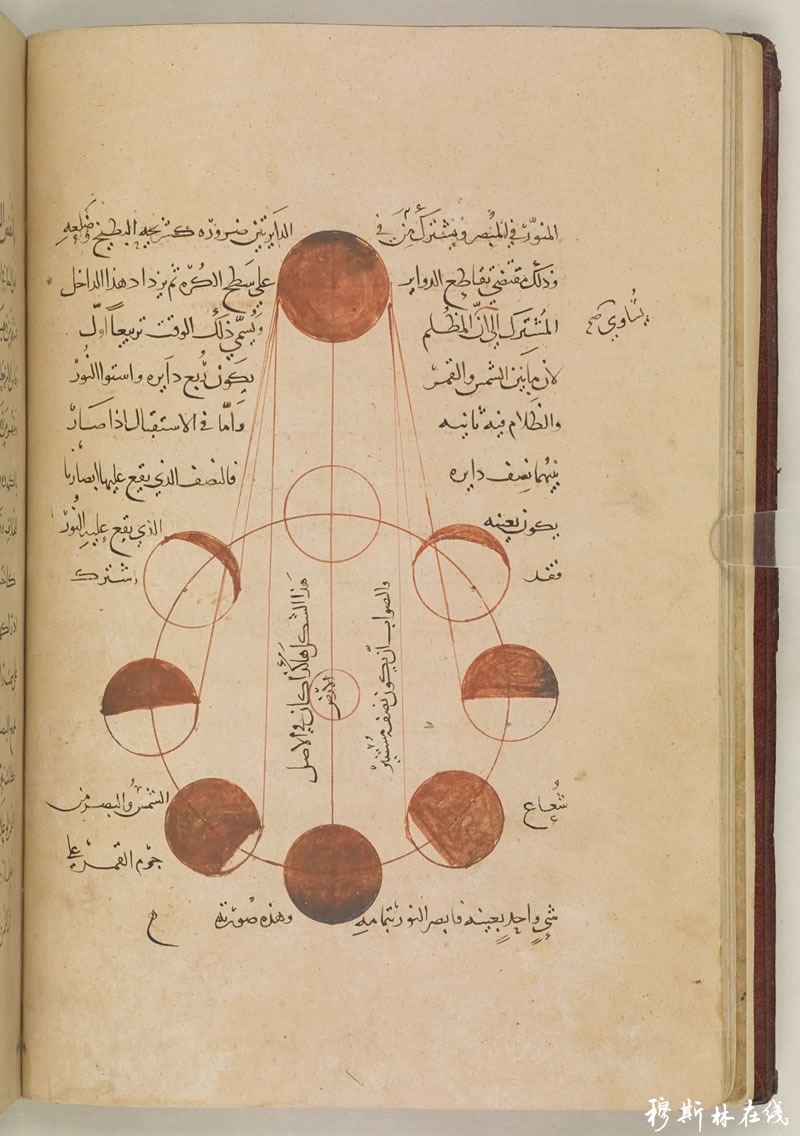 المنور في المبصر ويشترك من في الدايرتين ضرورة كتشريحه البطيخ وضلعه
وذلك مقتضى تقاطع الدواير على سطح الكرة ثم يزداد هذا الداخل
المشترك الى ان المظلم ويسمى ذلك الوقت تربيعا اول
لان ما بين الشمس والقمر يكون ربع دايره واستوا النور
والظلام فيه ثانيه واما في الاستقبال اذا صار
بينهما نصف دايره فالنصف الذي يقع عليها ابصارنا
يكون بعينه الذي يقع عليه النور
فقد اشترك
هذا الشكل هكذا كان في الاصل
والصواب ان يكون نصفه مستنير
الارض
شعاع الشمس والبصر من
جرم القمر على
شي واحد بعينه فابصر النور بتمامه وهذه صورته
穆斯林在线